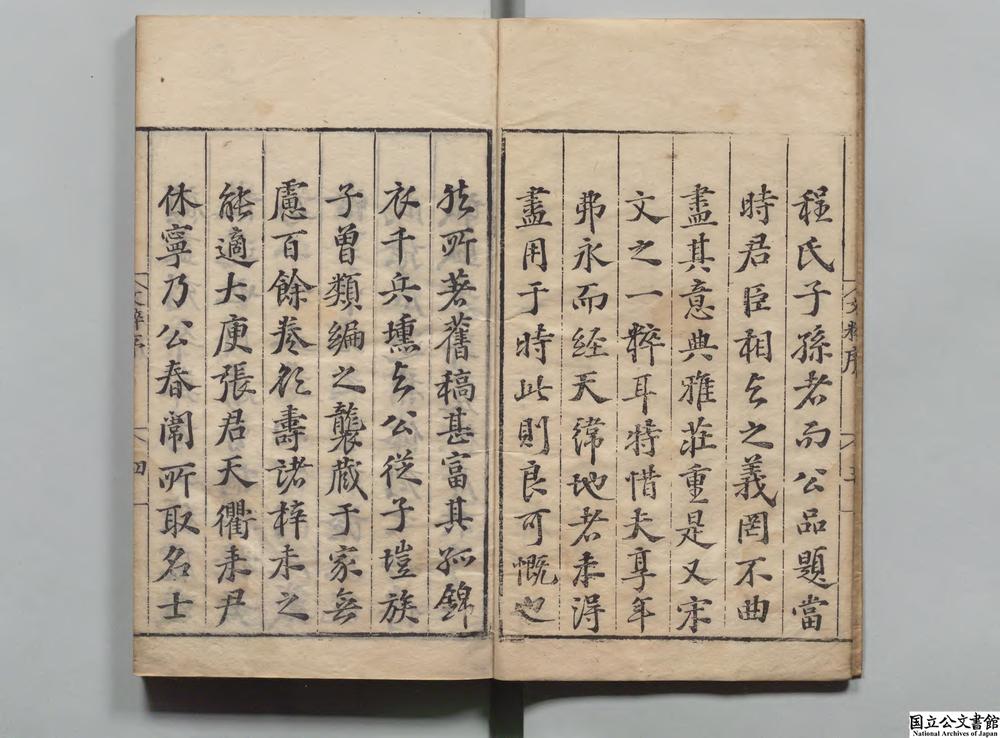 程氏子孫者而公品題當
時君臣相与之義罔不曲
盡其意典雅莊重是又宋
文之一粹耳特惜夫享年
弗永而経天緯地者未淂
盡用于時此則良可慨也
然所著舊稿甚富其孤錦
衣千兵壎与公從子塏族
子曾類編之襲蔵于家無
慮百餘卷欲壽諸梓未之
能適大庾張君天衢来尹
休寧乃公春闈所取名士
四
国立公文書館
National Archives of Japan